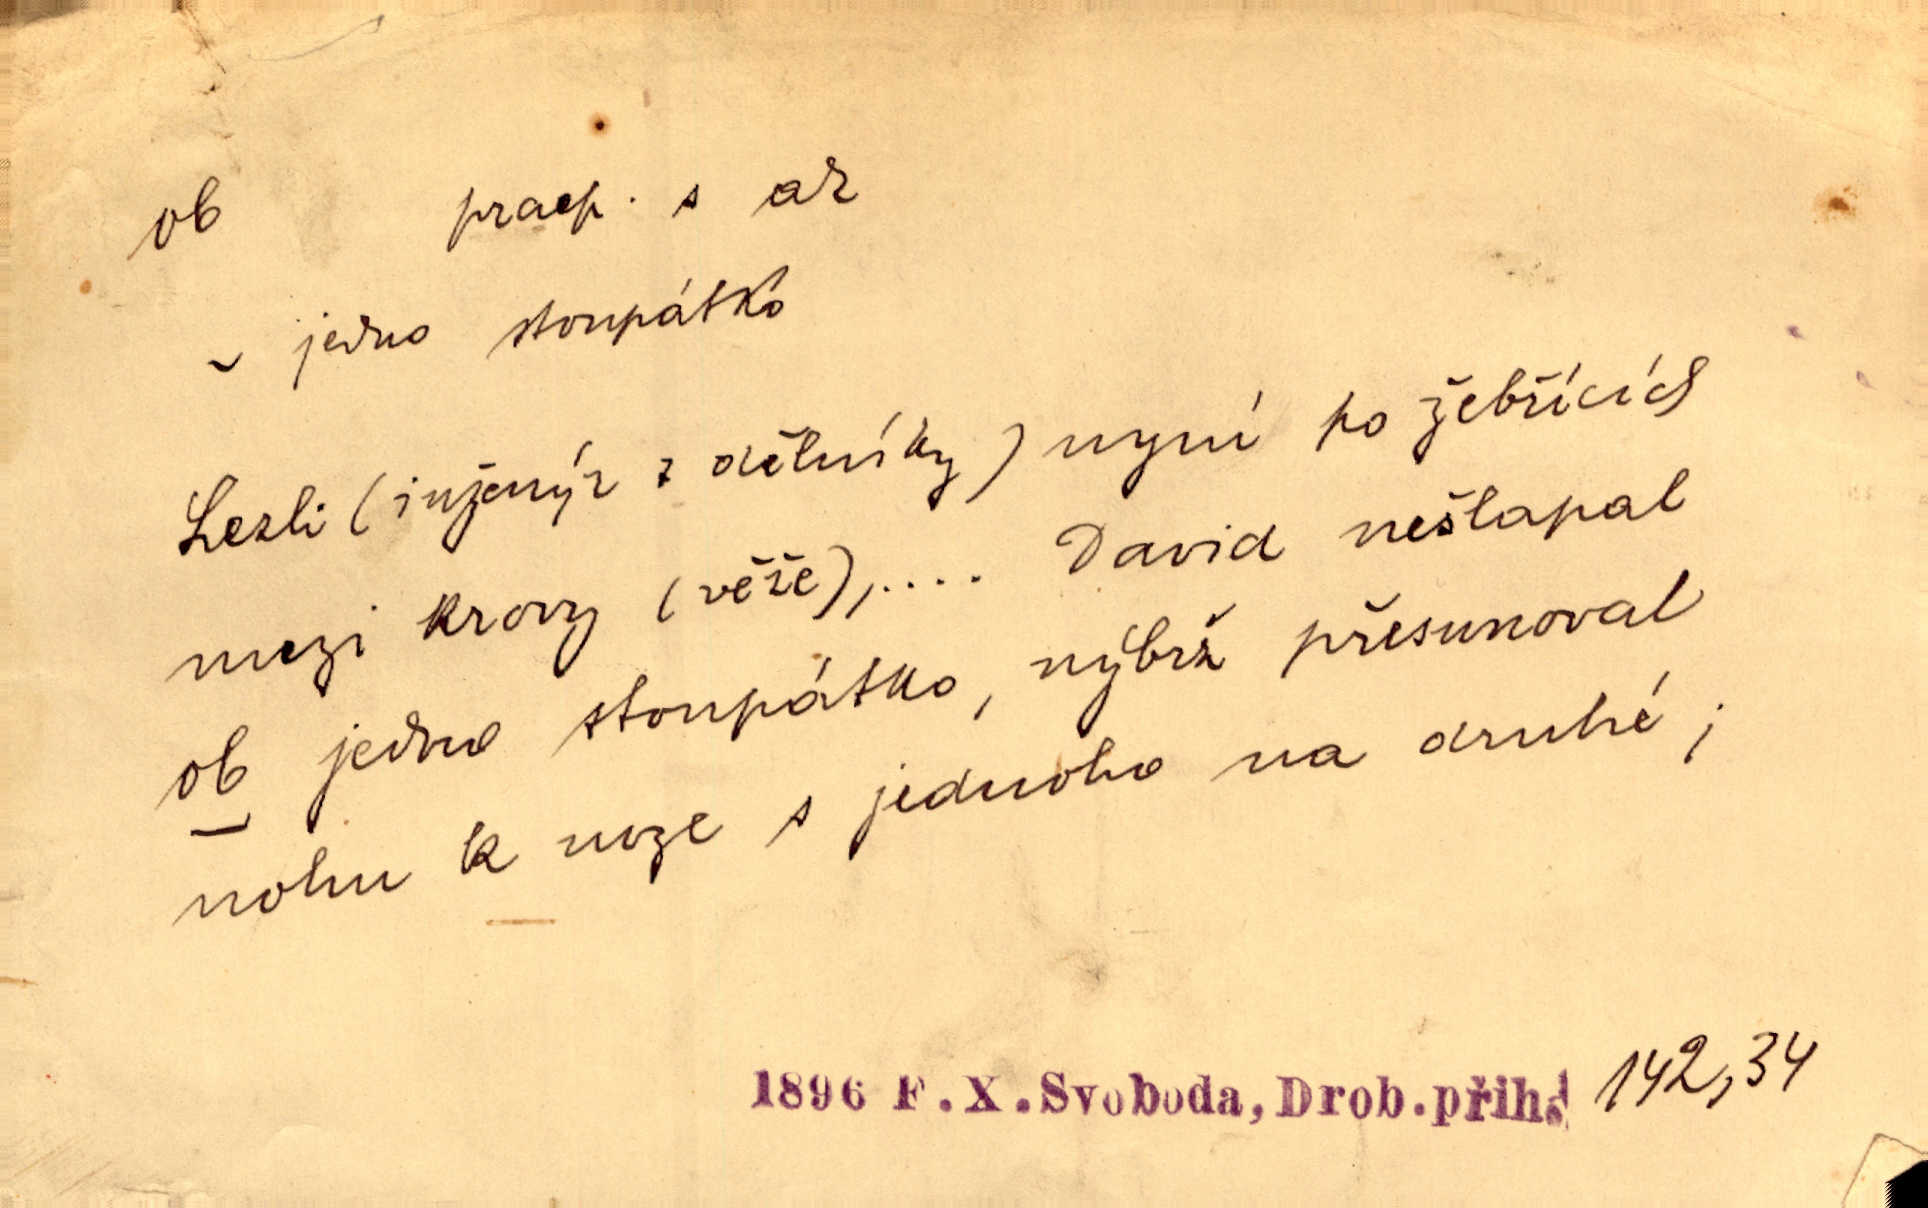 ob praep. s ak
~ jedno stoupátko
Lezli (inženýr s dělníky) nyní po žebřících
mezi krovy (věže),.... David nešlapal
ob jedno stoupátko, nýbrž přesunoval
nohu k noze s jednoho na druhé;
1896 F.X.Svoboda, Drob.přih. 142,34